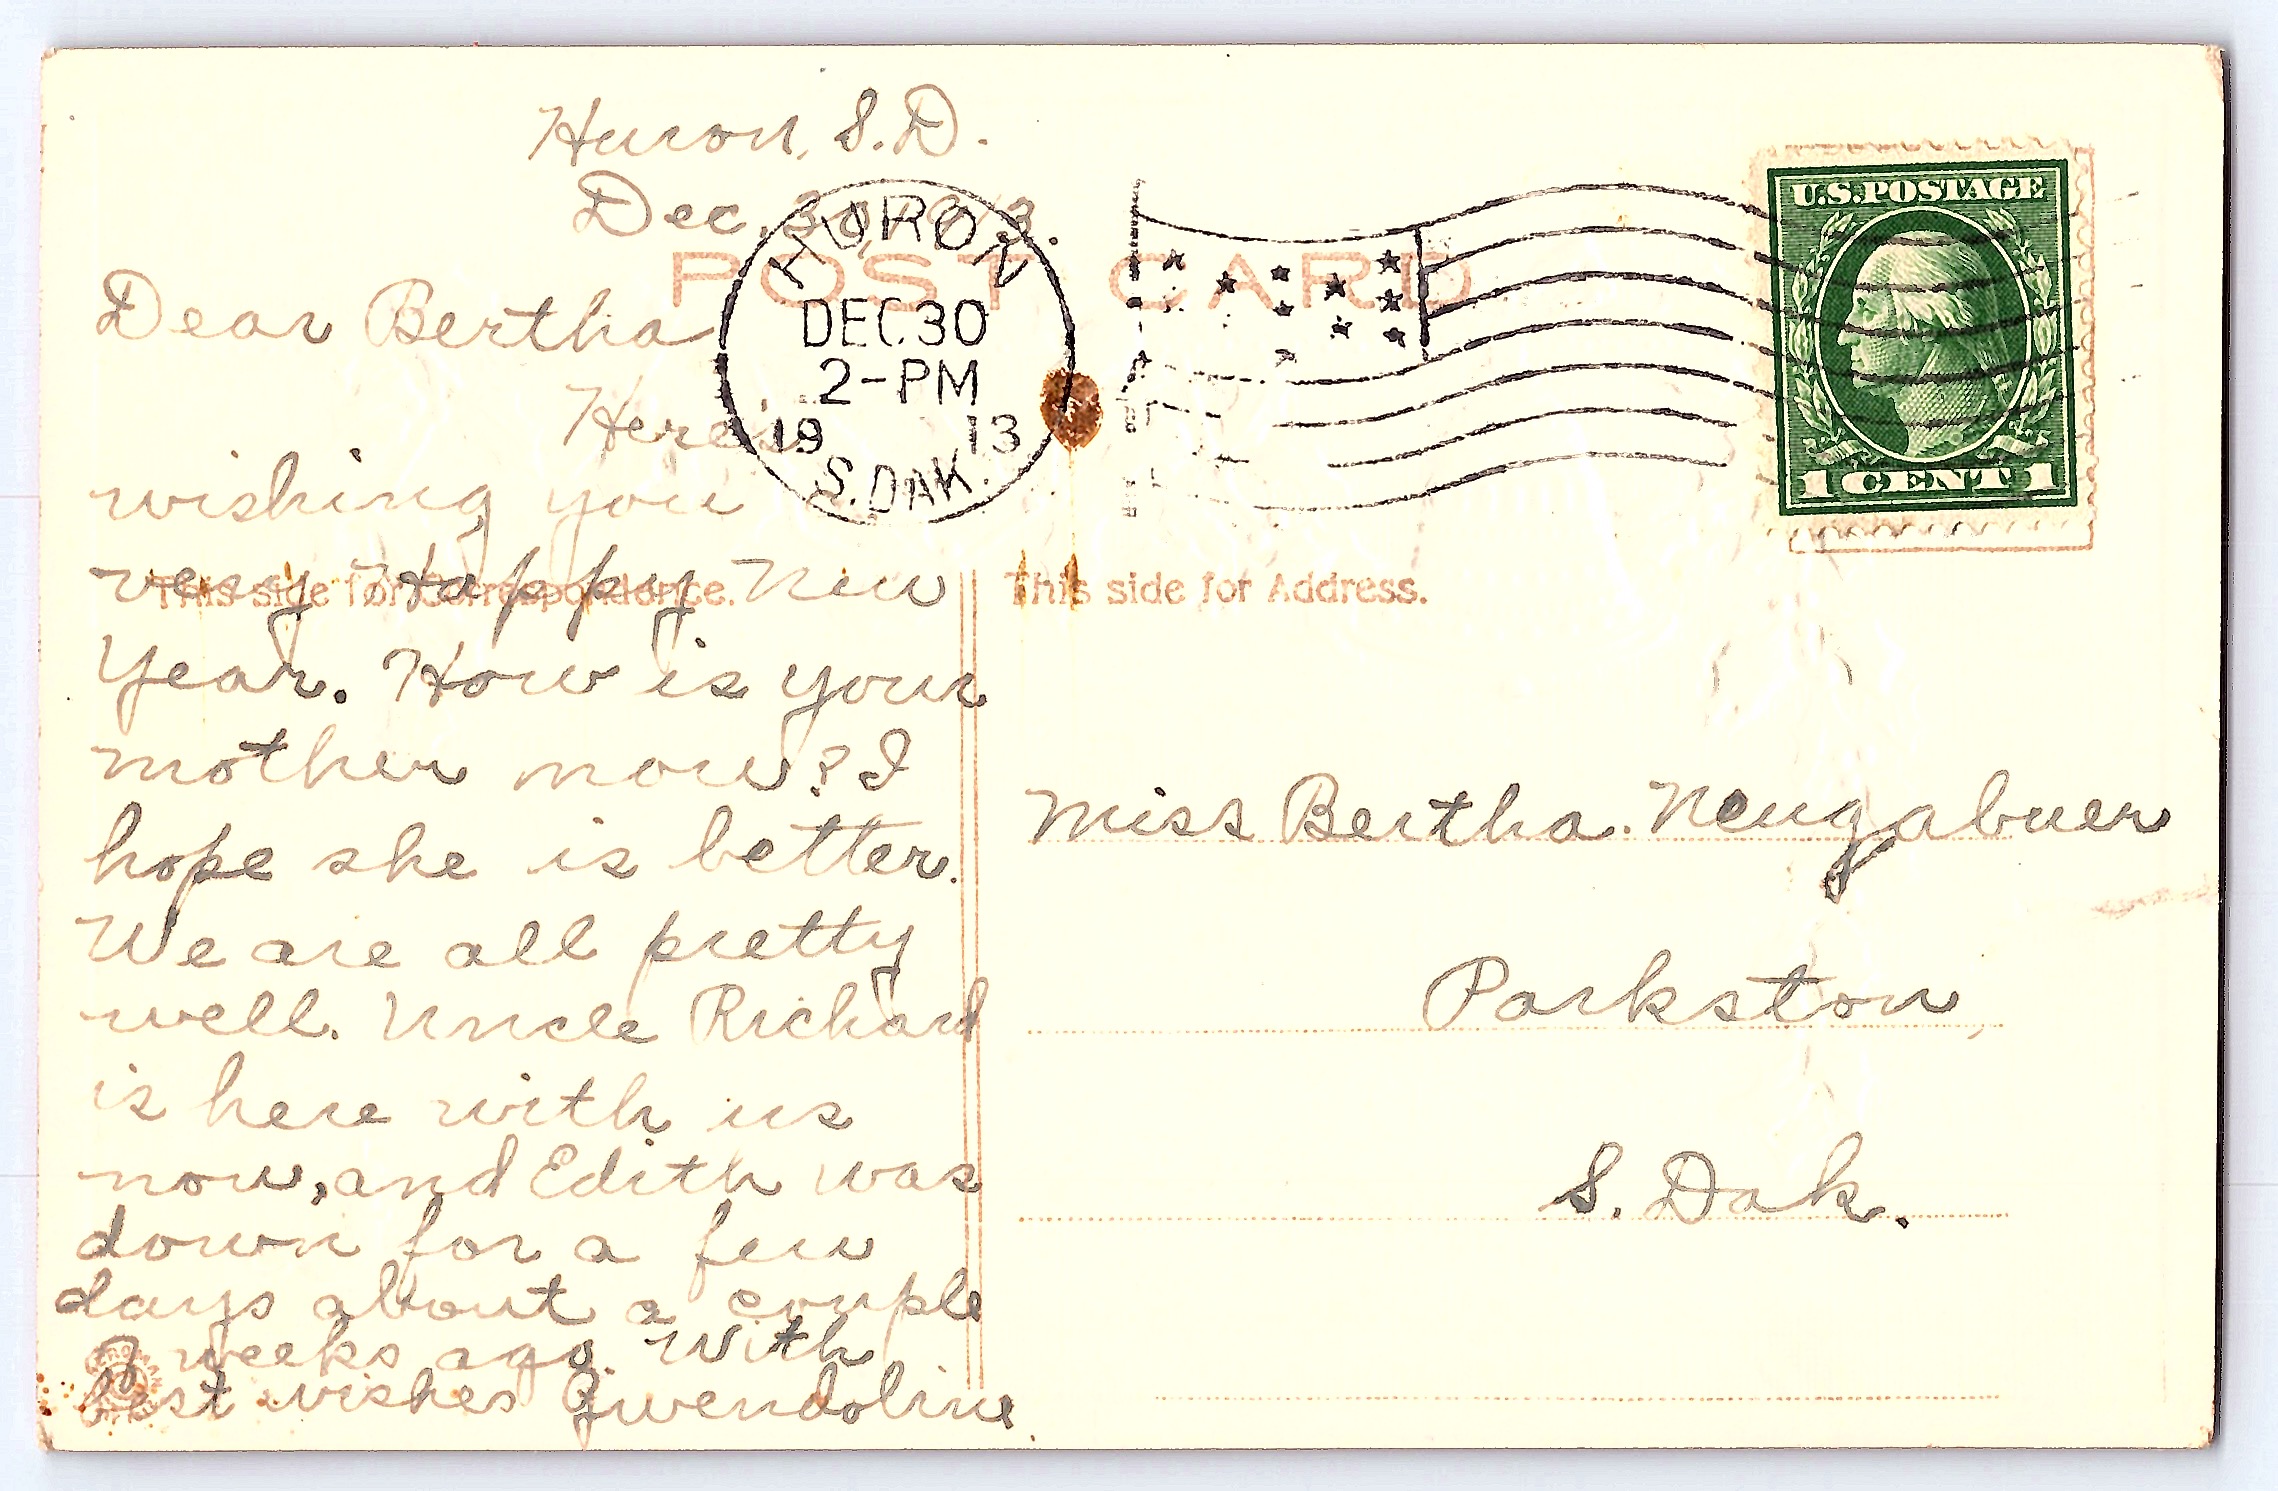 Huron, S.D.
Dec. 30, 1913.
POST CARD
HURON
DEC 30
2-PM
19 13
S. DAK.
U.S. POSTAGE
1 CENT 1
Dear Bertha
Here's
wishing you
very Happy New
Year. How is your
mother now? I
hope she is better.
We are all pretty
well. Uncle Richard
is here with us
now, and Edith was
down for a few
days about a couple
of weeks ago. With
best wishes Gwendoline
This side for Correspondence.
This side for Address.
Miss Bertha Neugabuer
Parkston,
S. Dak.